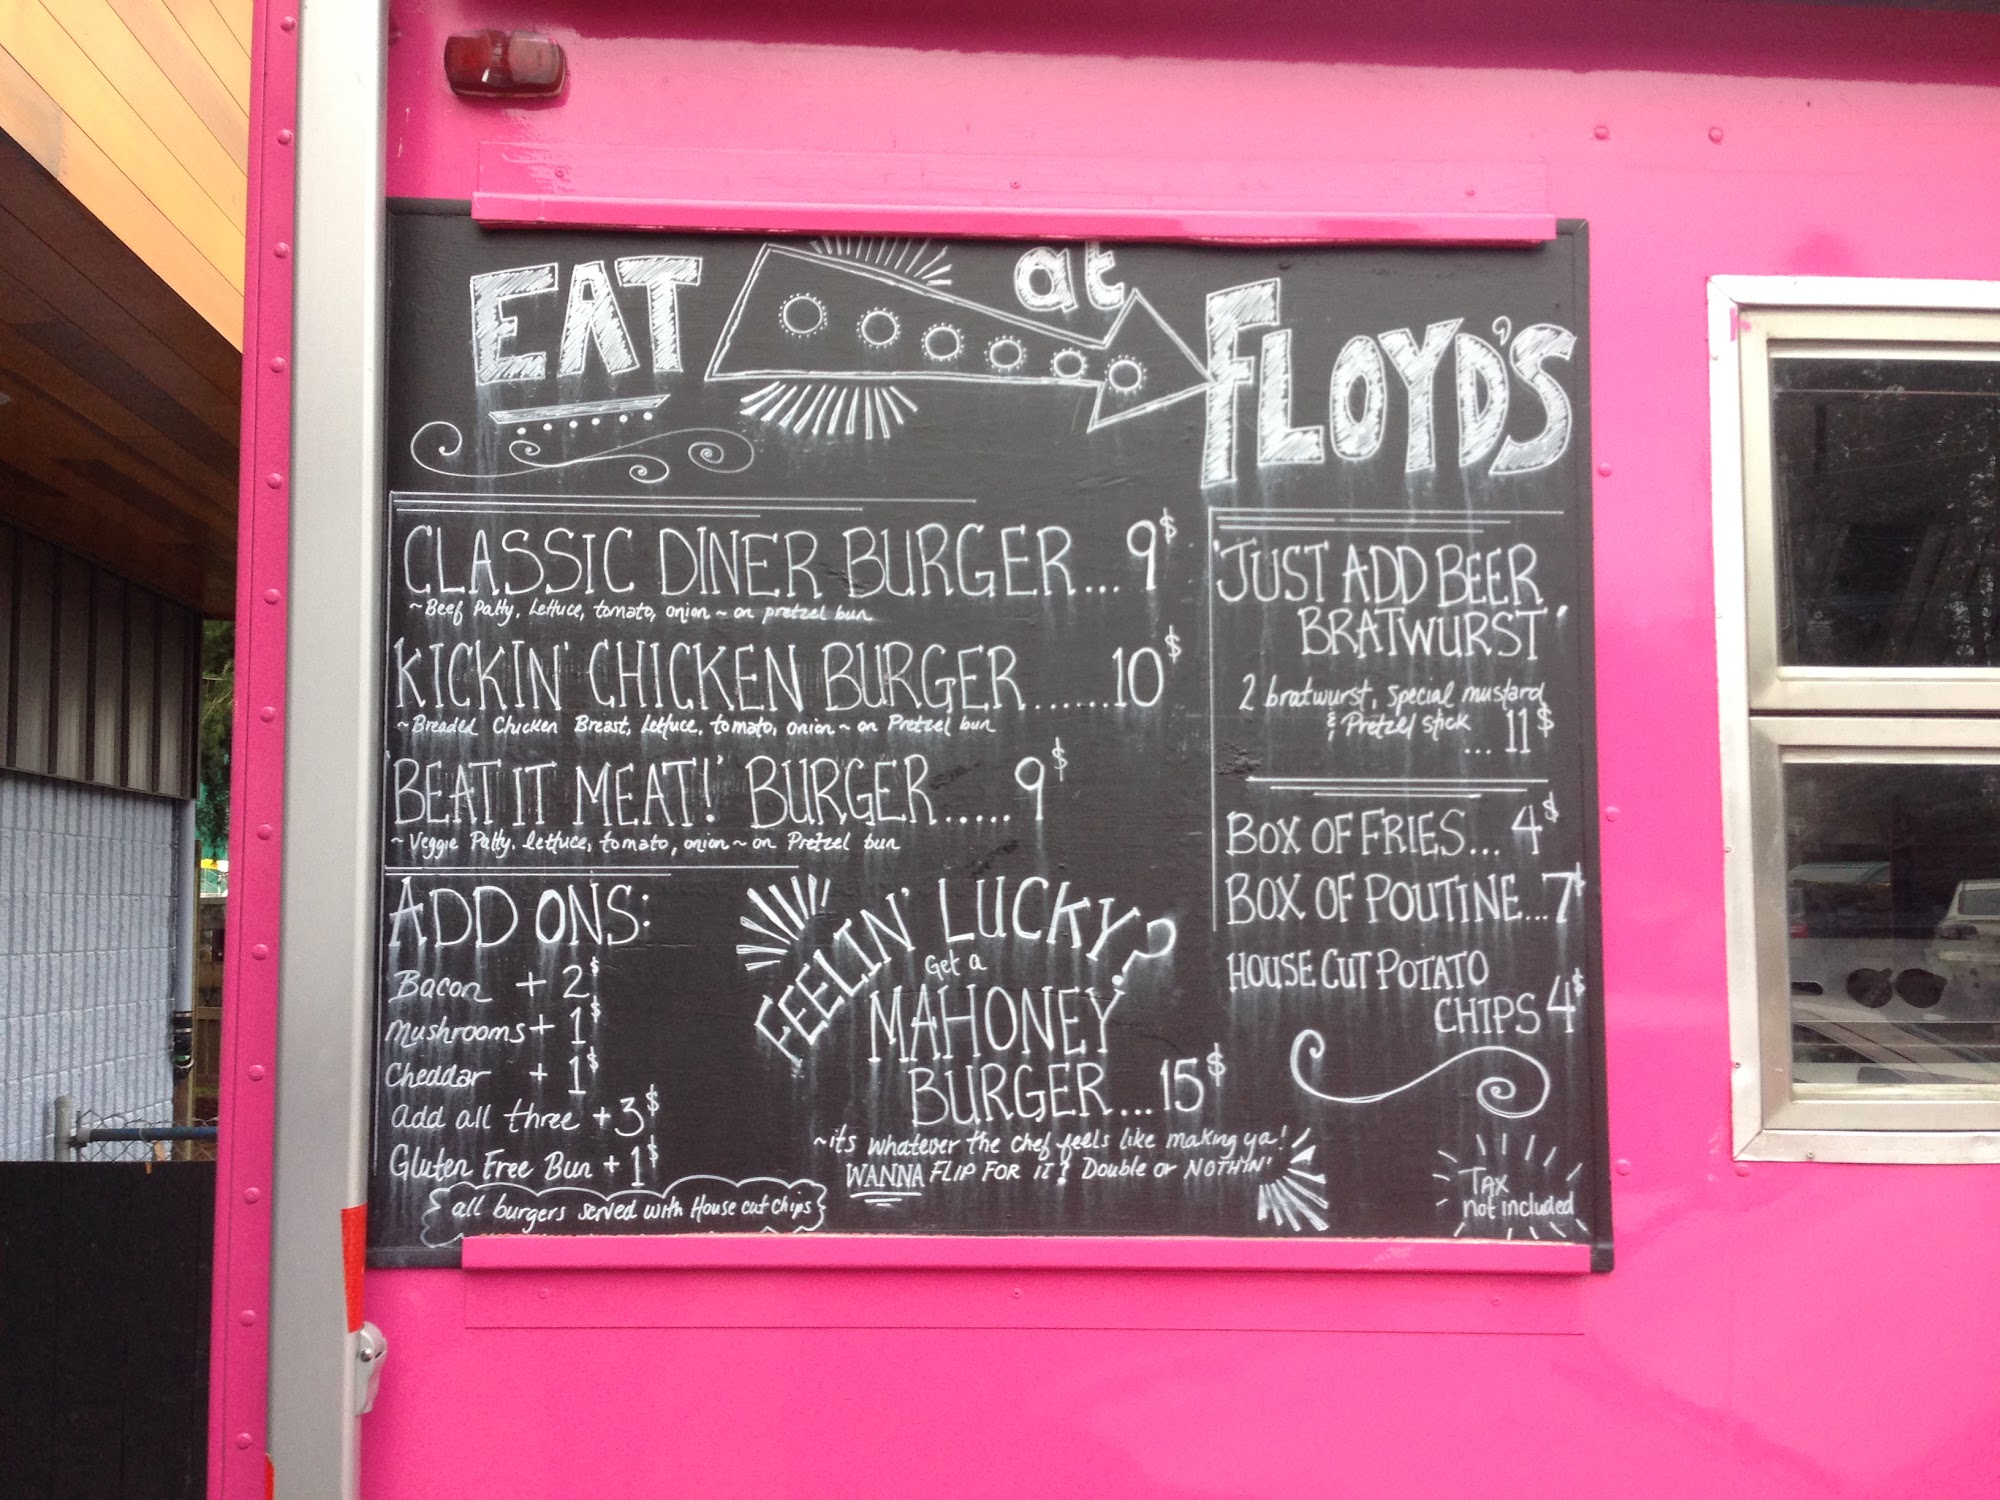 EAT at FLOYD'S
CLASSIC DINER BURGER... 9$
~Beef Patty, Lettuce, tomato, onion ~ on pretzel bun
'KICKIN' CHICKEN BURGER......10$
~Breaded Chicken Breast, Lettuce, tomato, onion ~ on Pretzel bun
'BEAT IT MEAT!' BURGER..... 9$
~Veggie Patty, lettuce, tomato, onion ~ on Pretzel bun
ADD ONS:
Bacon + 2$
Mushrooms + 1$
Cheddar + 1$
add all three + 3$
Gluten Free Bun + 1$
all burgers served with House cut chips
FEELIN' LUCKY?
Get a
MAHONEY
BURGER...15$
~its whatever the chef feels like making ya!
WANNA FLIP FOR IT? Double or NOTHIN'
'JUST ADD BEER
BRATWURST'
2 bratwurst, special mustard
& Pretzel stick
... 11$
BOX OF FRIES... 4$
BOX OF POUTINE...7$
HOUSE CUT POTATO
CHIPS 4$
TAX
not included